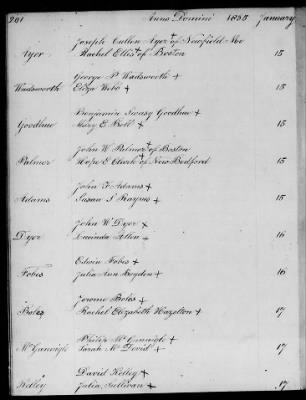 201 Anno Domini 1855 January
Joseph Cutler Ayer + of Newfield Me
Ayer Rachel Ellis + of Boston 15
George P Wadsworth +
Wadsworth Eliza Webb + 15
Benjamin Swasey Goodhue +
Goodhue Mary E Bell + 15
John W Palmer + of Boston
Palmer Hope E Clark + of New Bedford 15
John F Adams +
Adams Susan S Haynes + 15
John W Dyer +
Dyer Lucinda Allen + 16
Edwin Fobes +
Fobes Julia Ann Boyden + 16
Jerome Boles +
Boles Rachel Elizabeth Hazelton + 17
Philip McGunnigle +
McGunnigle Sarah McDevid + 17
David Kelley +
Kelley Julia Sullivan + 17